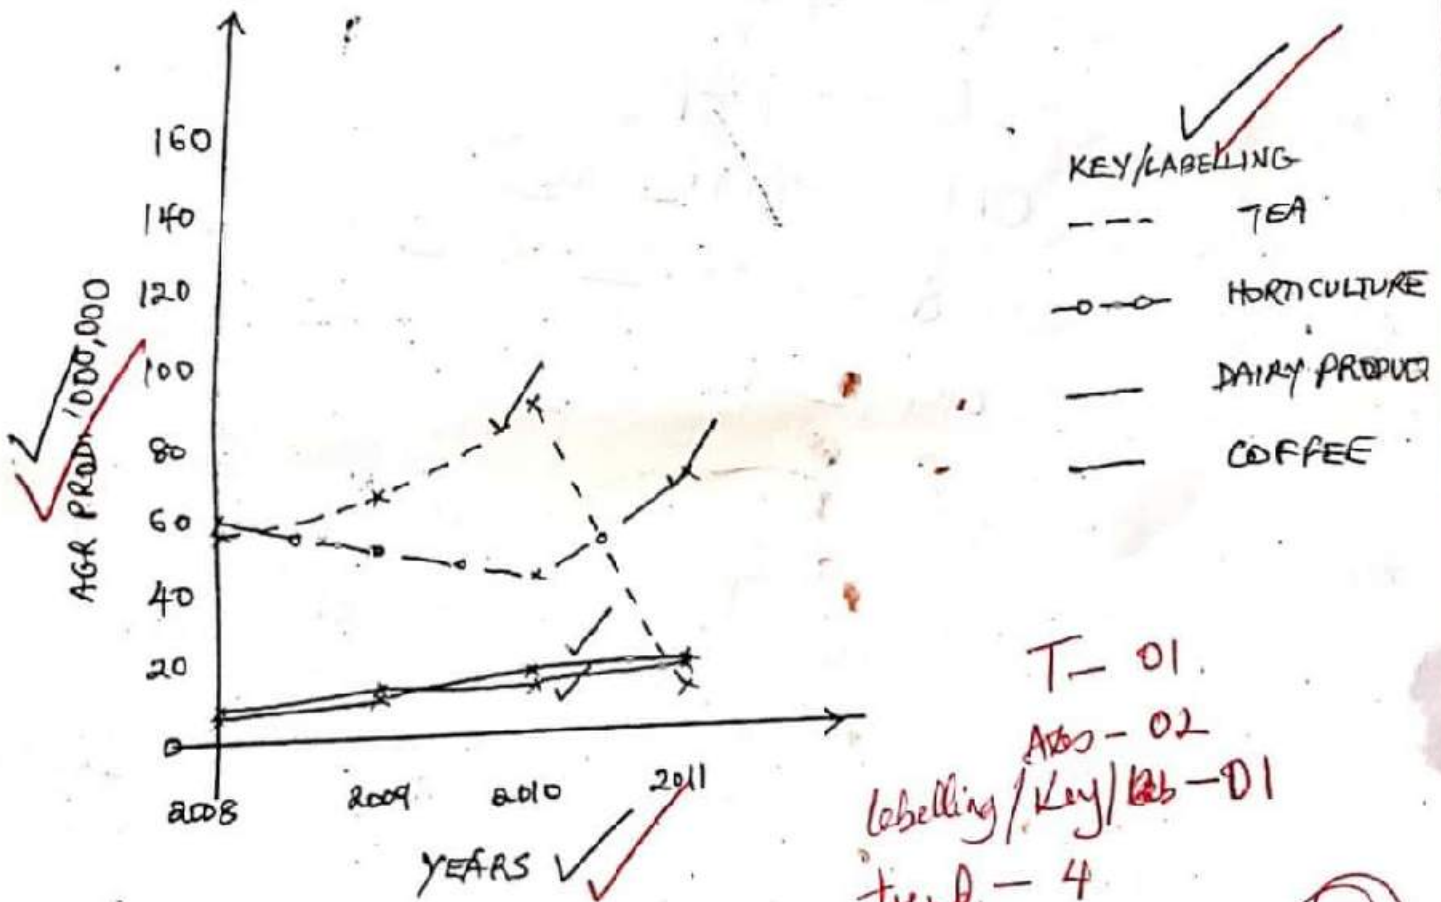 160
140
120
100
80
60
40
20
0
AGR PROD. '000,000
2008 2009 2010 2011
YEARS
KEY/LABELLING
TEA
HORTICULTURE
DAIRY PRODUC
COFFEE
T - 01.
Axes - 02
labelling/Key/ - 01
- 4